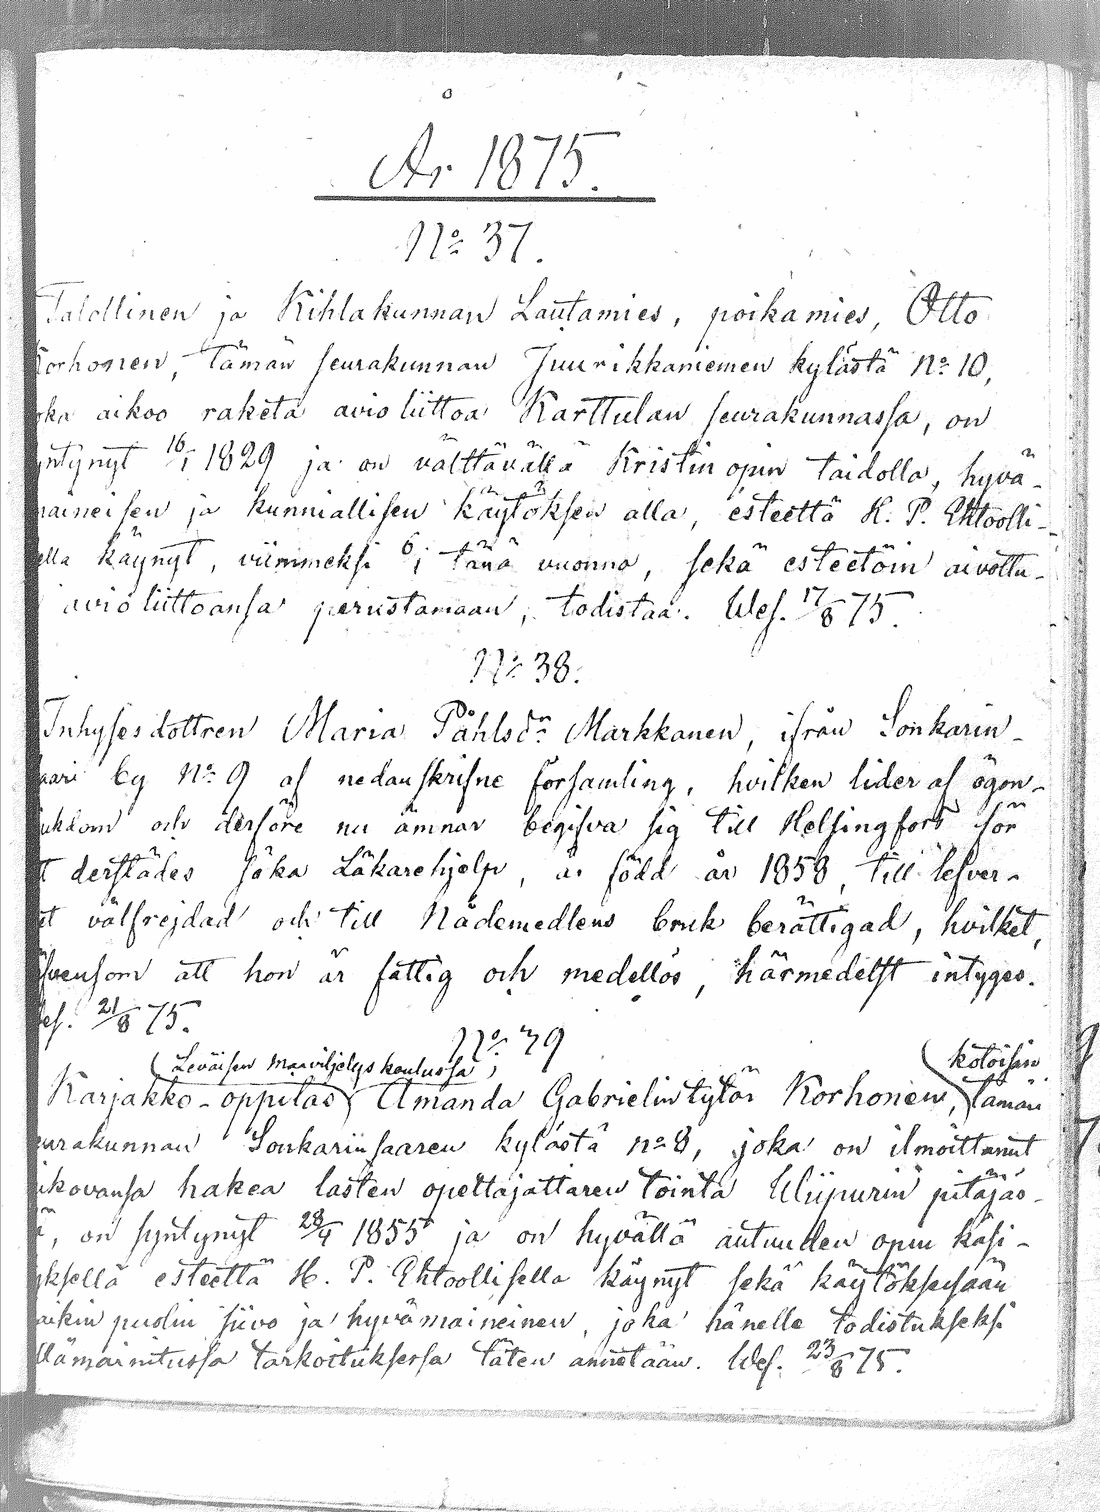 År 1875.
No 37.
Talollinen ja Kihlakunnan Lautamies, poikamies, Otto
Korhonen, tämän seurakunnan Juurikkaniemen kylästä No 10,
oka aikoo raketa avioliittoa Karttulan seurakunnassa, on
yntynyt 16/1 1829 ja on välttävällä Kristin opin taidolla, hyvä-
maineisen ja kunniallisen käytöksen alla, esteettä H. P. Ehtoolli-
ella käynyt, viimmeksi 6/1 tänä vuonna, sekä esteetöin aivottu-
avioliittoansa perustamaan, todistaa. Wes. 17/8 75.
No 38.
Inhysesdottren Maria Påhlsdr Markkanen, ifrån Sonkarin-
aari by No 9 af nedanskrifne församling, hvilken lider af ögon-
ukdom och derföre nu ämnar begifva sig till Helsingfors för
t derstädes söka Läkarehjelp, är född år 1858, till lefver-
et välfrejdad och till Nådemedlens bruk berättigad, hvilket,
äfvensom att hon är fattig och medellös, härmedelst intyges.
Wes. 21/8 75.
No 39
(Leväisen maaviljelys koulussa) (kotoisin
Karjakko-oppilas Amanda Gabrielin tytär Korhonen, tämän
eurakunnan Sonkarinsaaren kylästä No 8, joka on ilmoittanut
ikovansa hakea lasten opettajattaren tointa Wiipurin pitäjäs-
ä, on syntynyt 28/4 1855 ja on hyvällä autuuden opin käsi-
yksellä esteettä H. P. Ehtoollisella käynyt sekä käytöksessään
aikin puolin siivo ja hyvämaineinen, joka hänelle todistukseksi
llämainitussa tarkoituksessa täten annetaan. Wes. 23/8 75.